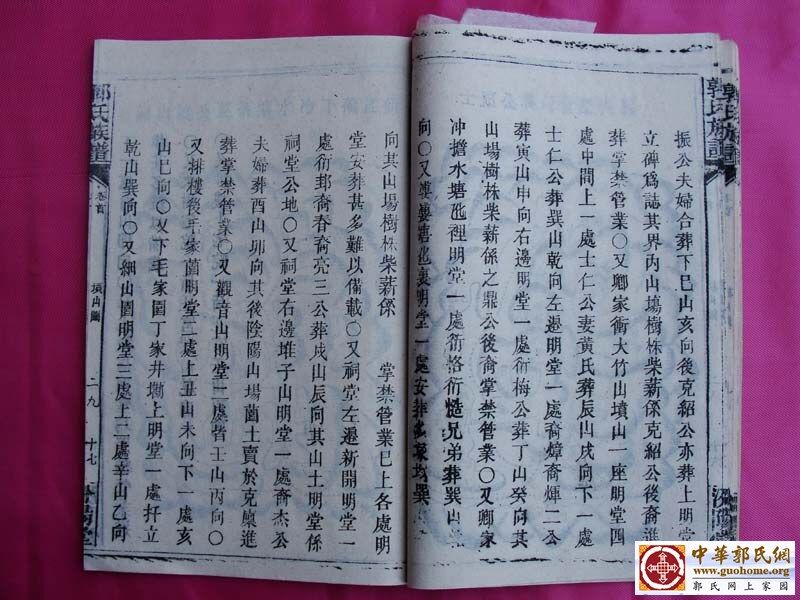 郭氏族譜
振公夫婦合葬下巳山亥向後克紹公亦葬上明堂
立碑爲誌其界內山塲樹株柴薪係克紹公後裔進
葬掌禁管業〇又鄉家衝大竹山墳山一座明堂四
處中間上一處士仁公妻黃氏葬辰山戌向下一處
士仁公葬巽山乾向左邊明堂一處裔煒裔煇二公
葬寅山申向右邊明堂一處衍梅公葬丁山癸向其
山塲樹株柴薪係之鼎公後裔掌禁管業〇又鄉家
冲擔水塘灺裡明堂一處衍恪衍慥兄弟葬巽山
向〇又婁婁塘灺裏明堂一處安葬多
向其山塲樹株柴薪係 掌禁管業已上各處明
堂安葬甚多難以備載〇又祠堂左邊新開明堂一
處衍邦裔春裔亮三公葬戍山辰向其山土明堂係
祠堂公地〇又祠堂右邊堆子山明堂一處裔杰公
夫婦葬酉山卯向其後陰陽山塲薗土賣於克槺進
葬掌禁管業〇又觀音山明堂二處皆壬山丙向〇
又排樓後毛家薗明堂二處上丑山未向下一處亥
山巳向〇又下毛家園丁家井墈上明堂一處扦立
乾山巽向〇又細山園明堂三處上二處辛山乙向
郭氏族譜
卷首
墳山圖
二九
十七
中華郭氏網
www.guohome.org
郭氏网上家园